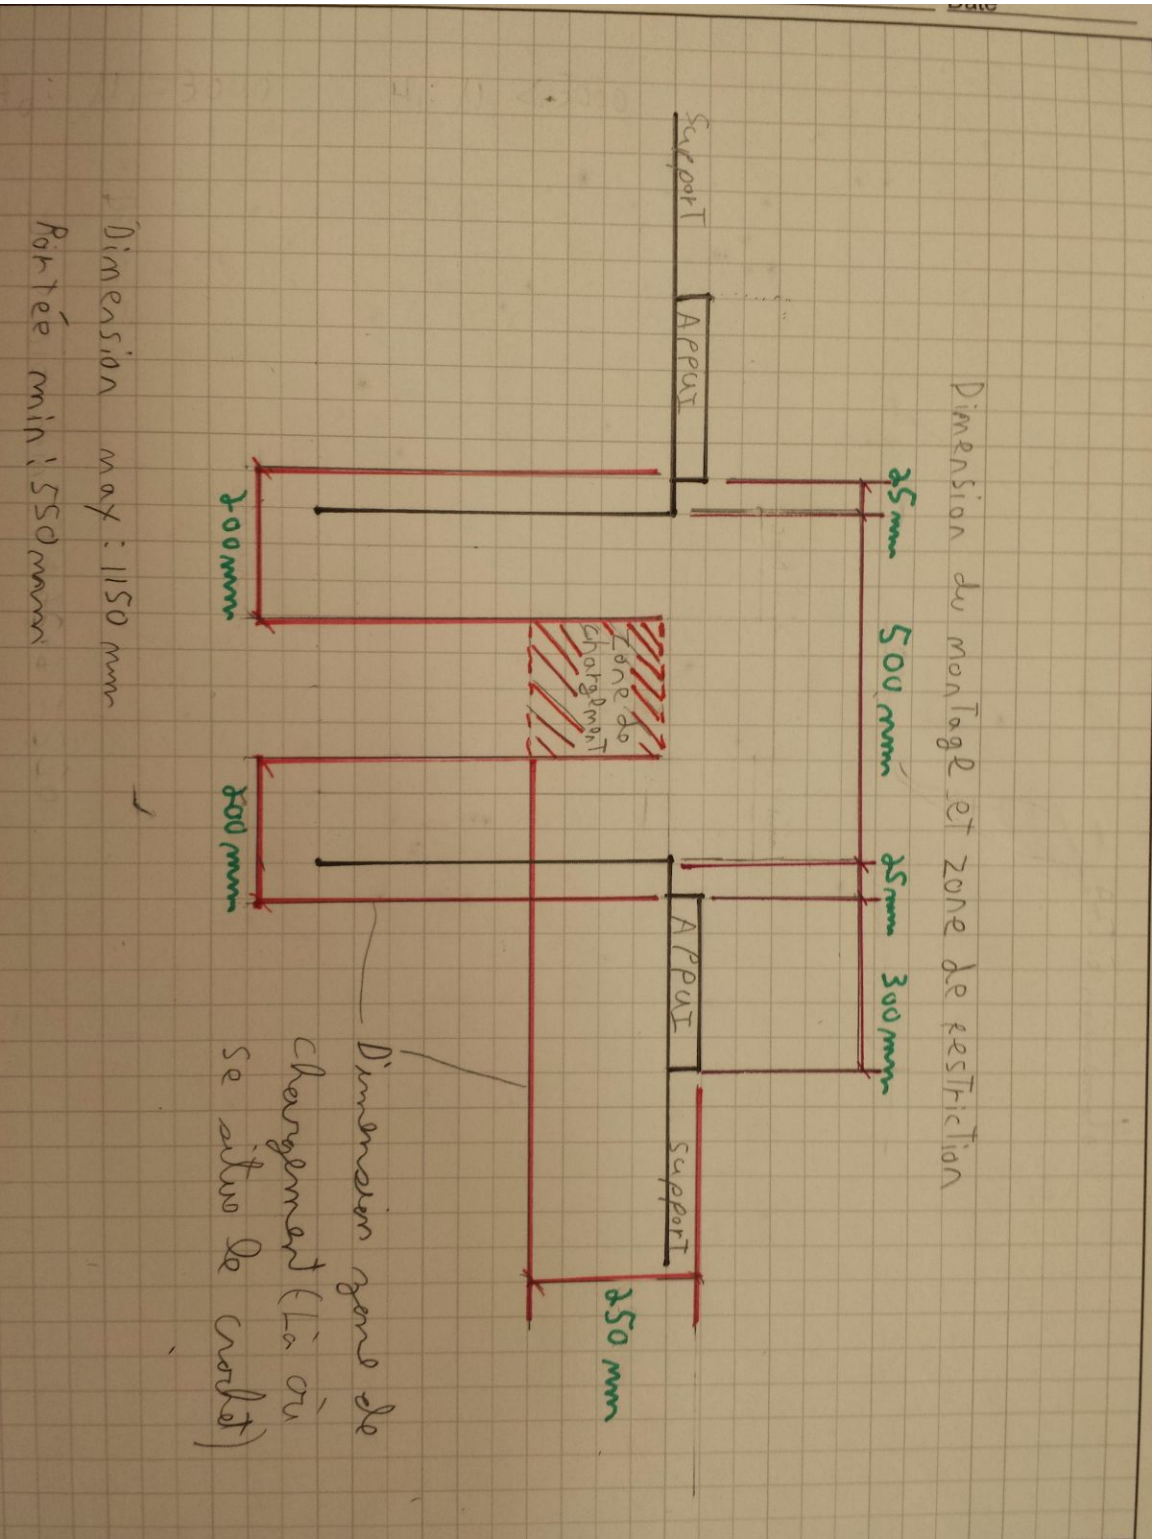 Date
Dimension du montage et zone de restriction
25mm 500 mm 25mm 300mm
Support APPUI APPUI support
zone de
chargement
250 mm
200mm 200mm
Dimension zone de
chargement (Là où
se situe le crochet)
Dimension max : 1150 mm
Portée min : 550mm